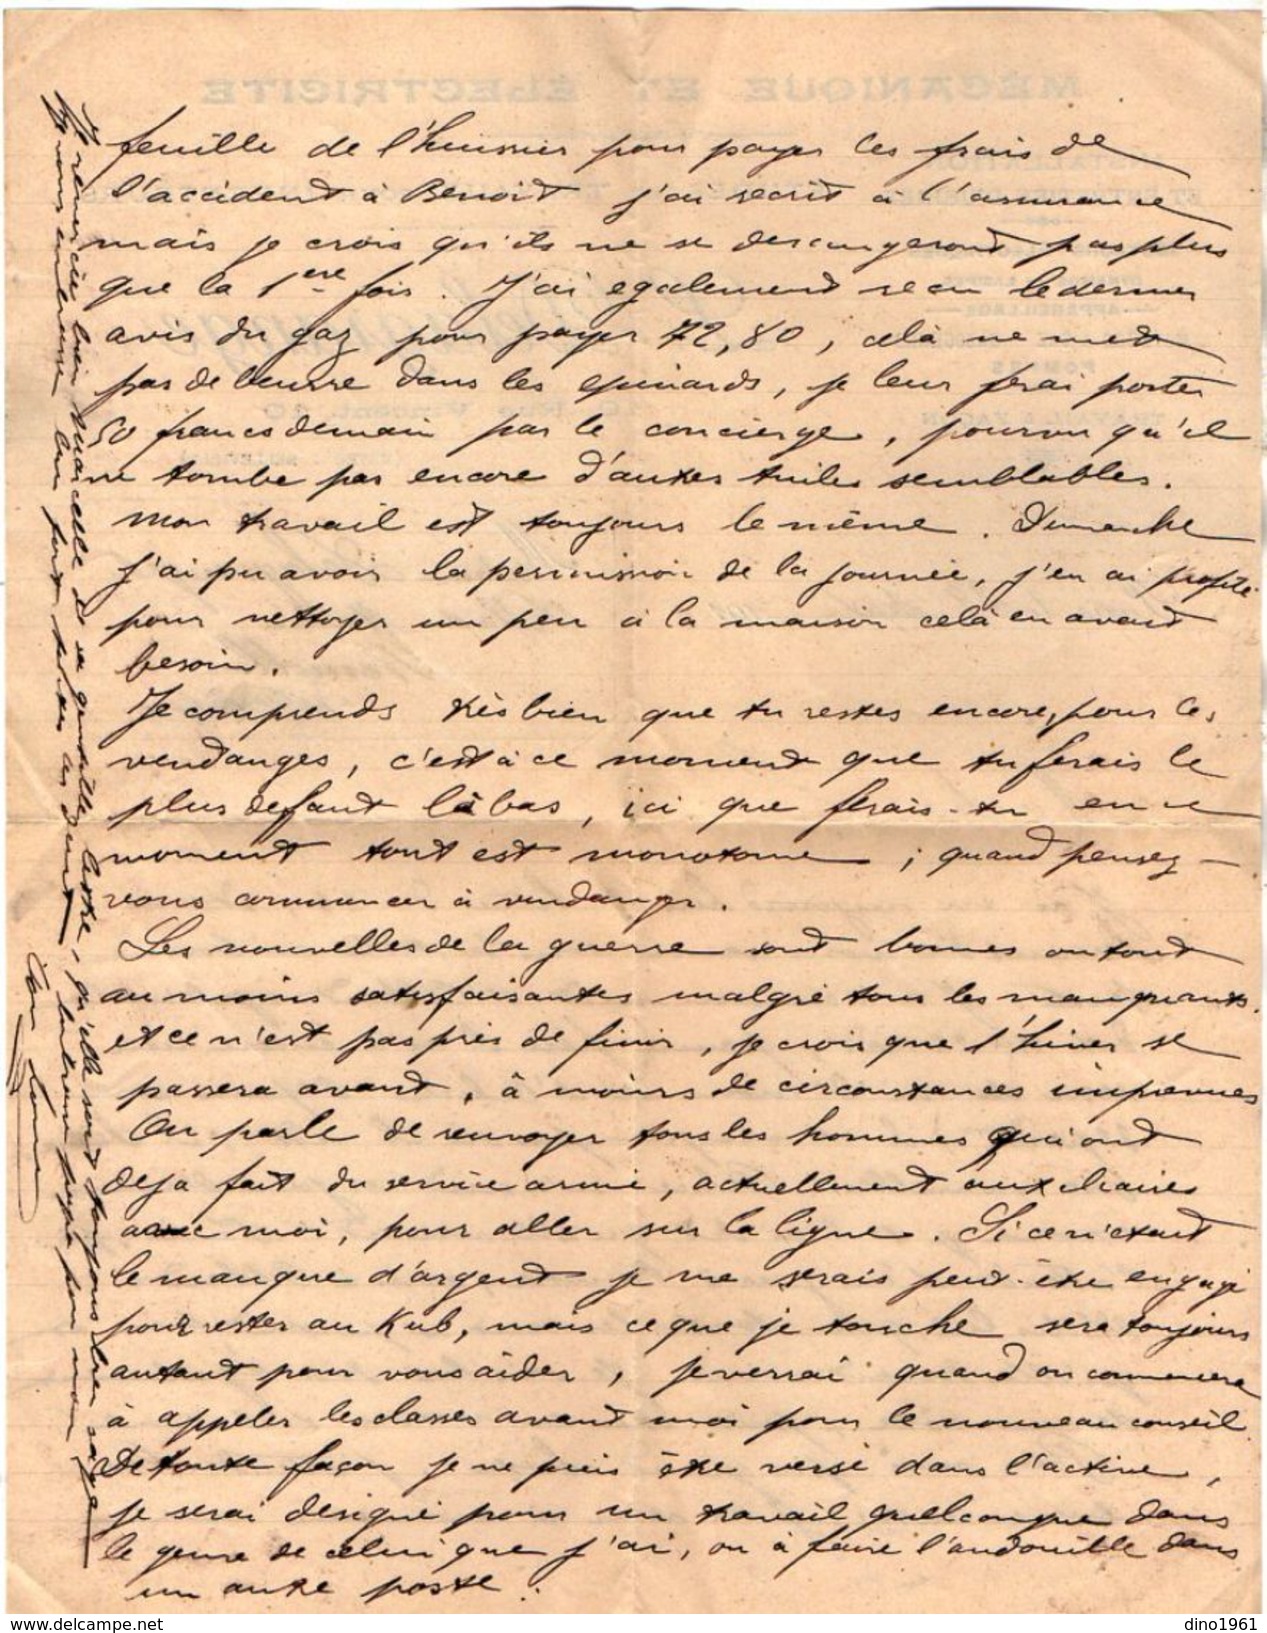 feuille de l'huissier pour payer les frais de
l'accident à Benoit j'ai recrit à l'assurance
mais je crois qu'ils ne se derangeront pas plus
que la 1ere fois. J'ai egalement recu le dernier
avis du gaz pour payer 72,80, celà ne met
pas de beurre dans les epinards, je leur ferai porter
50 francs demain par le concierge, pourvu qu'il
ne tombe pas encore d'autres tuiles semblables.
Mon travail est toujours le même. Dimanche
j'ai pu avoir la permission de la journée, j'en ai profité
pour nettoyer un peu à la maison celà en avait
besoin.
Je comprends très bien que tu restes encore, pour les
vendanges, c'est à ce moment que tu ferais le
plus defaut làbas, ici que ferais-tu en ce
moment tout est monotone ; quand pensez-
vous commencer à vendanger.
Les nouvelles de la guerre sont bonnes ou tout
au moins satisfaisantes malgré tous les manquants.
et ce n'est pas près de finir, je crois que l'hiver se
passera avant, à moins de circonstances imprevues
On parle de renvoyer tous les hommes qui ont
deja fait du service armé, actuellement auxiliaires
avec moi, pour aller sur la ligne. Si ce n'etait
le manque d'argent je me serais peut-être engagé
pour rester au Kub, mais ce que je touche sera toujours
autant pour vous aider, je verrai quand on commencera
à appeler les classes avant moi pour le nouveau conseil
De toute façon je ne puis être versé dans l'active,
je serai designé pour un travail quelconque dans
le genre de celui que j'ai, ou à faire l'andouille dans
un autre poste.
Je remercie bien Marcelle de sa gentille lettre, qu'elle soit toujours bien sage
Je vous embrasse bien fort toutes en
Ton
MÉCANIQUE ET ÉLECTRICITÉ
delcampe.net
dino1961